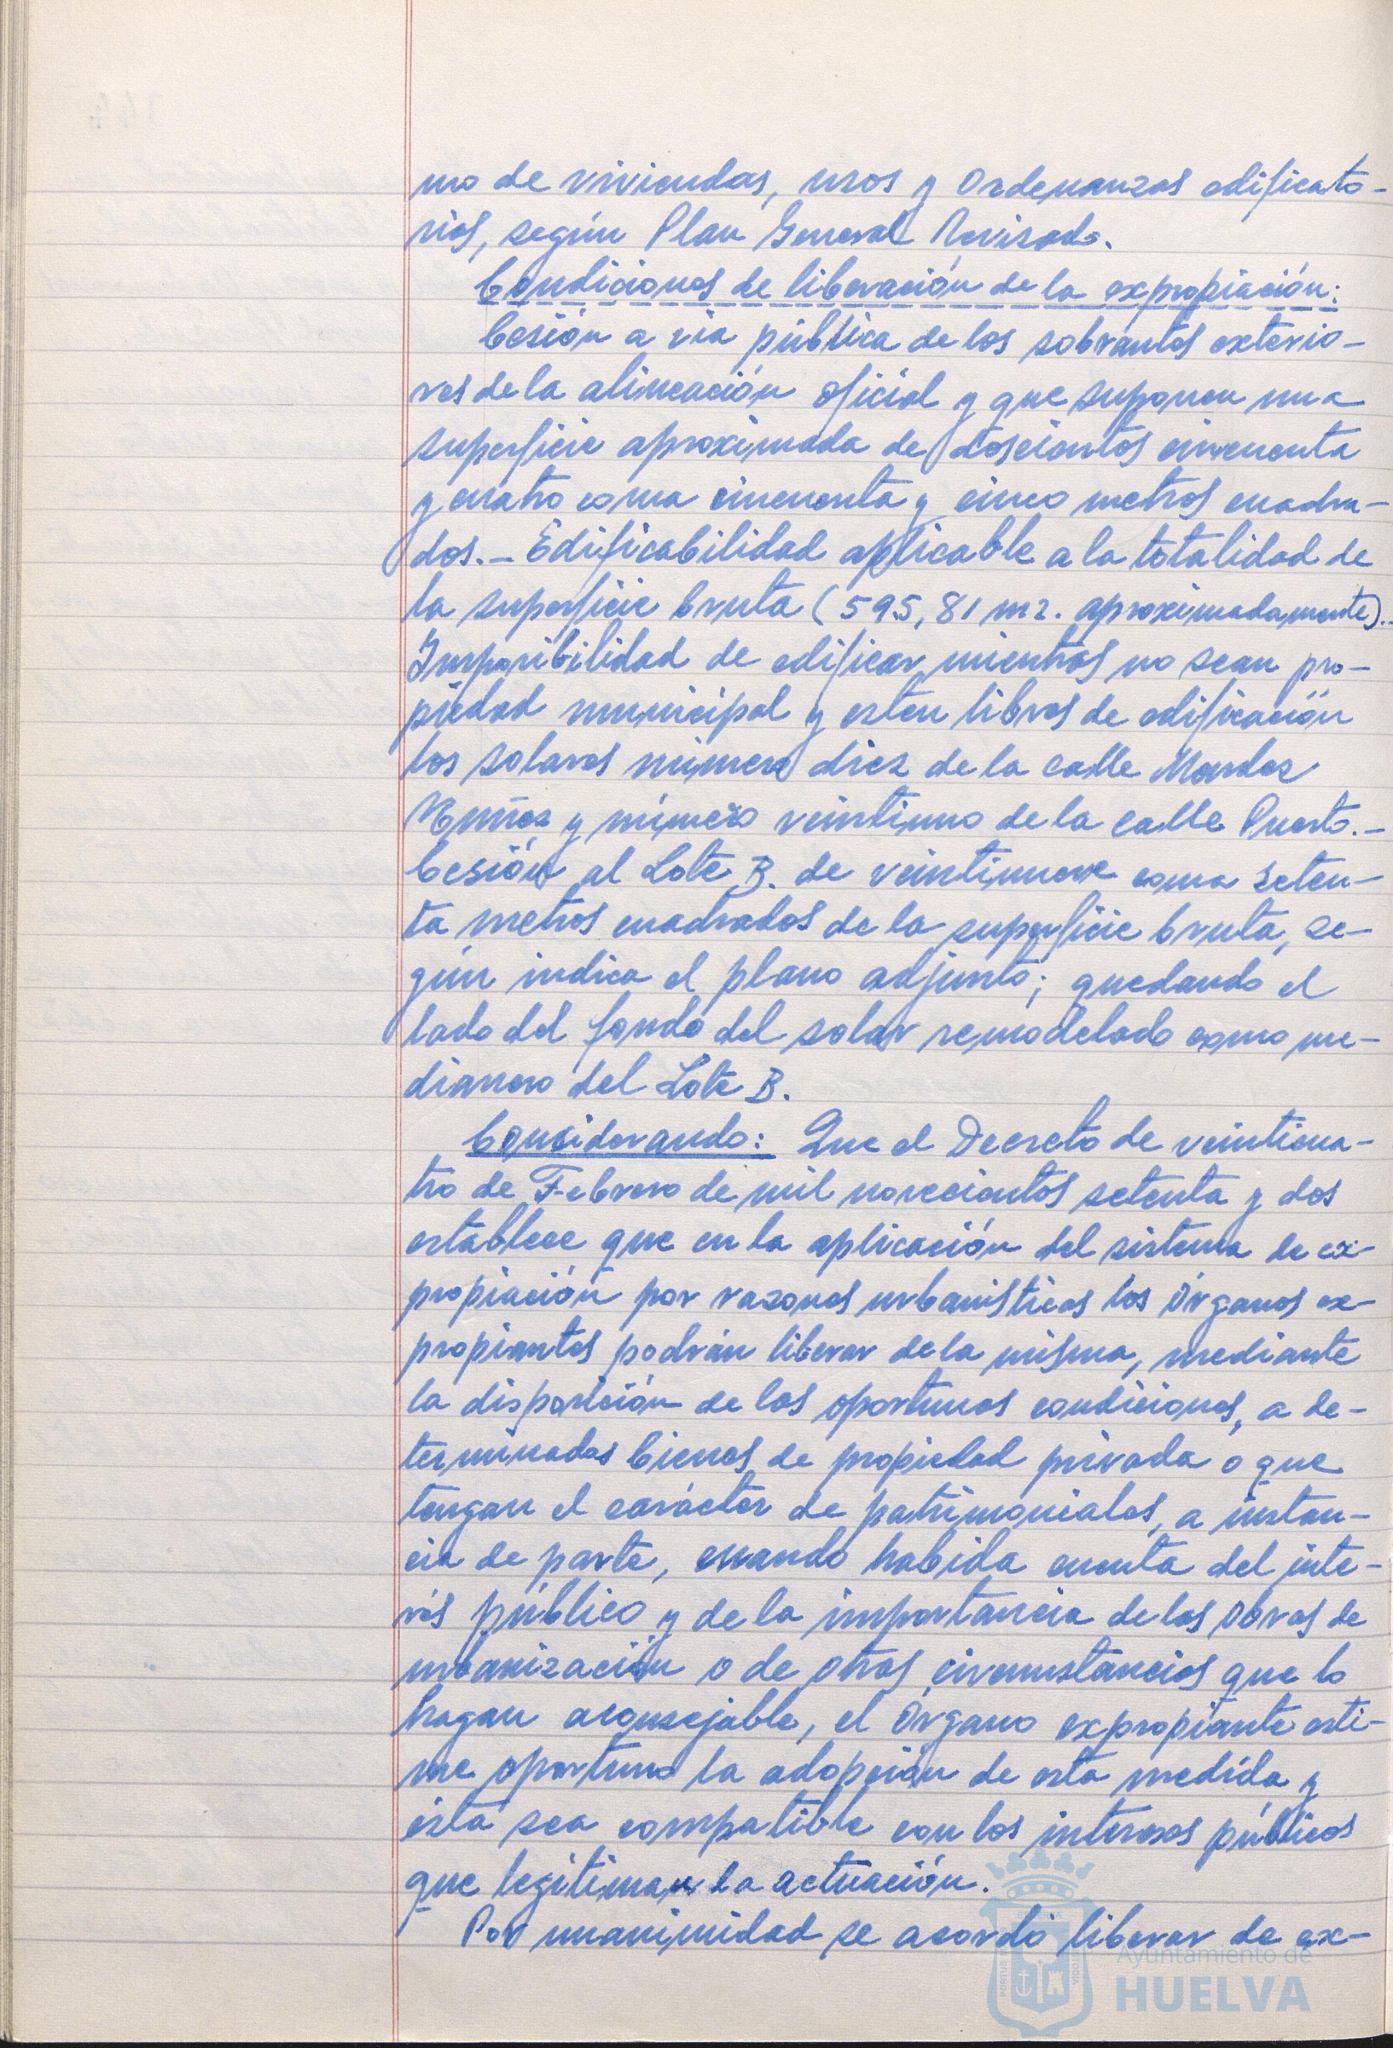 mo de viviendas, usos y Ordenanzas edificato-
rias, según Plan General Revisado.
Condiciones de liberación de la expropiación:
Cesión a via pública de los sobrantes exterio-
res de la alineación oficial y que suponen una
superficie aproximada de doscientos cincuenta
y cuatro coma cincuenta y cinco metros cuadra-
dos.- Edificabilidad aplicable a la totalidad de
la superficie bruta (595,81 m2. aproximadamente).-
Imposibilidad de edificar mientras no sean pro-
piedad municipal y esten libres de edificación
los solares número diez de la calle Mendez
Nuñez y número veintiuno de la calle Puerto.-
Cesión al Lote B. de veintinueve coma seten-
ta metros cuadrados de la superficie bruta, se-
gún indica el plano adjunto; quedando el
lado del fondo del solar remodelado como me-
dianero del Lote B.
Considerando: Que el Decreto de veinticua-
tro de Febrero de mil novecientos setenta y dos
establece que en la aplicación del sistema de ex-
propiación por razones urbanísticas los Órganos ex-
propiantes podrán liberar de la misma, mediante
la disposición de las oportunas condiciones, a de-
terminados bienes de propiedad privada o que
tengan el carácter de patrimoniales, a instan-
cia de parte, cuando habida cuenta del inte-
rés público y de la importancia de las obras de
urbanización o de otras circunstancias que lo
hagan aconsejable, el Órgano expropiante esti-
me oportuno la adopción de esta medida y
ésta sea compatible con los intereses públicos
que legitiman la actuación.
Por unanimidad se acordó liberar de ex-
Ayuntamiento de
HUELVA